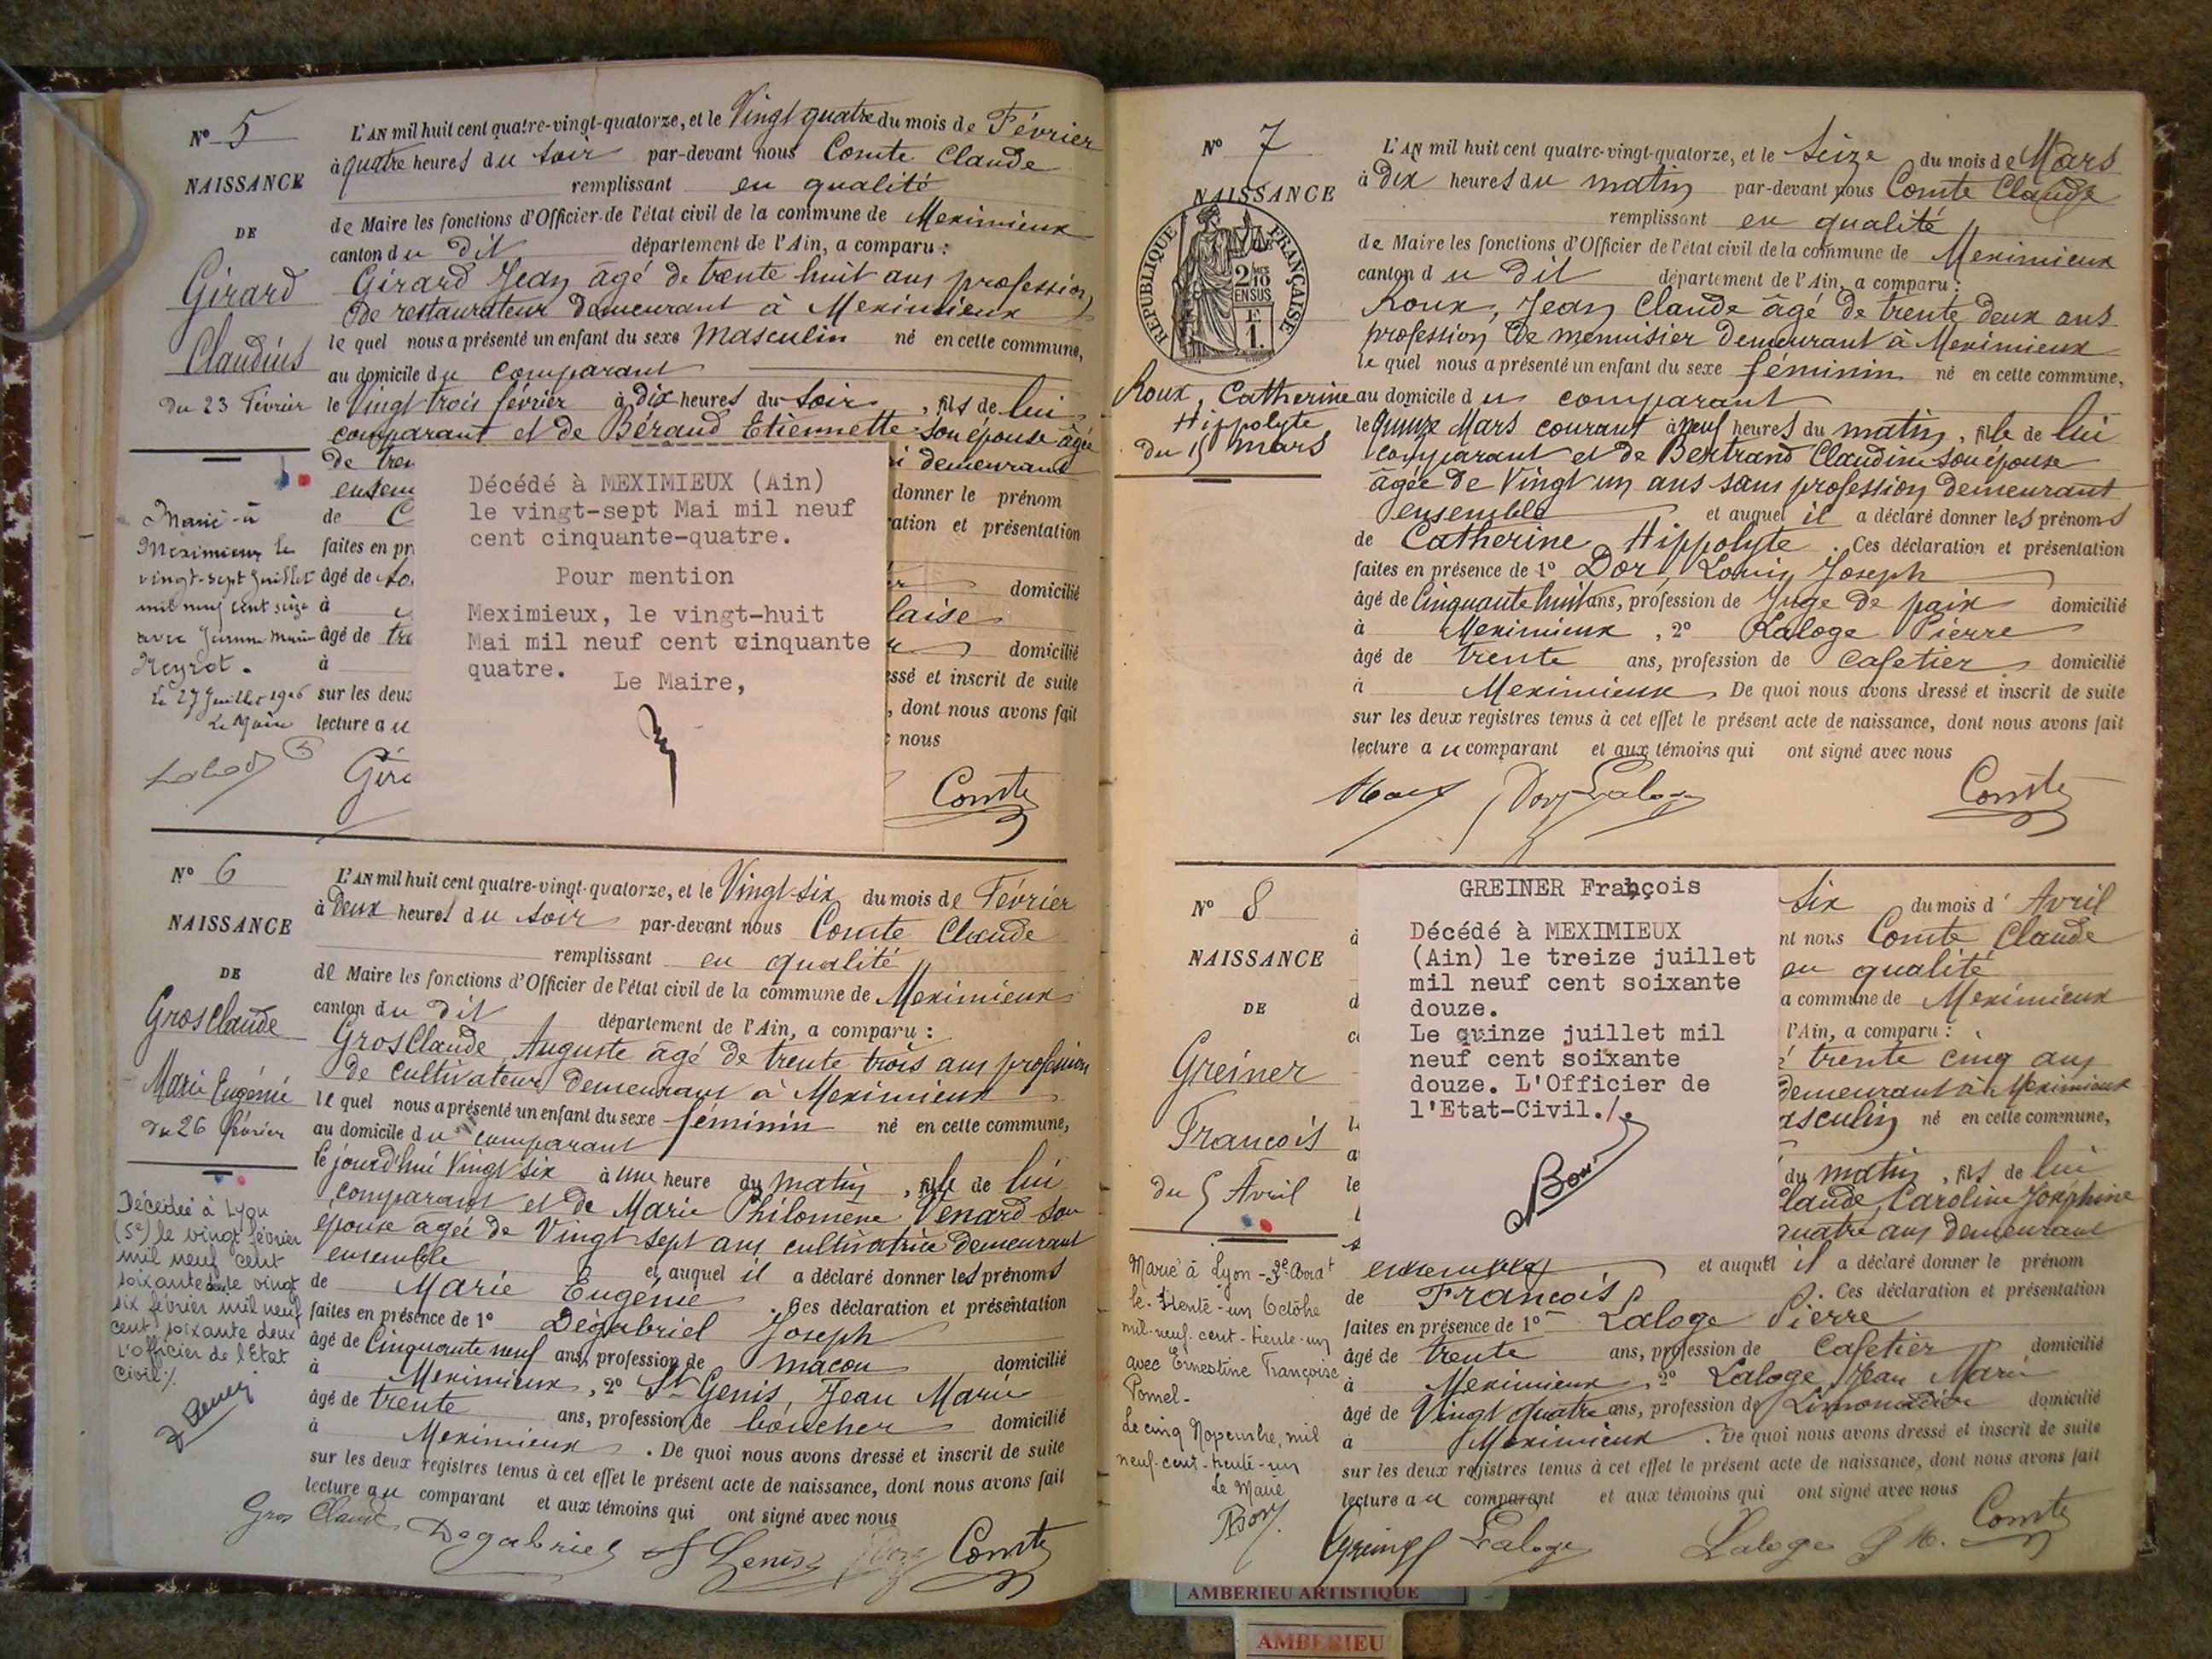 N° 5
NAISSANCE
DE
Girard
Claudius
du 23 Février
Marié à
Meximieux le
vingt-sept Juillet
mil neuf cent seize
avec Jeanne Marie
Neyrot.
Le 27 Juillet 1916
Le Maire
L'AN mil huit cent quatre-vingt-quatorze, et le Vingt quatre du mois de Février
à quatre heures du soir par-devant nous Comte Claude
remplissant en qualité
de Maire les fonctions d'Officier de l'état civil de la commune de Meximieux
canton du dit département de l'Ain, a comparu :
Girard Jean âgé de trente huit ans profession
de restaurateur demeurant à Meximieux
le quel nous a présenté un enfant du sexe Masculin né en cette commune,
au domicile du comparant
le Vingt trois février à dix heures du soir, fils de lui
comparant et de Béraud Etiennette son épouse âgée
de tren
i demeurant
ensem
donner le prénom
de C
ration et présentation
faites en pr
âgé de so
domicilié
à
laise
âgé de tre
domicilié
à
essé et inscrit de suite
sur les deux
, dont nous avons fait
lecture au
nous
Gira
Comte
Décédé à MEXIMIEUX (Ain)
le vingt-sept Mai mil neuf
cent cinquante-quatre.
Pour mention
Meximieux, le vingt-huit
Mai mil neuf cent cinquante
quatre.
Le Maire,
N° 6
NAISSANCE
DE
GrosClaude
Marie Eugénie
du 26 février
Décédée à Lyon
(5e) le vingt février
mil neuf cent
soixante deux le vingt
six février mil neuf
cent soixante deux
L'officier de l'Etat
Civil ./.
L'AN mil huit cent quatre-vingt-quatorze, et le Vingt-six du mois de Février
à deux heures du soir par-devant nous Comte Claude
remplissant en qualité
de Maire les fonctions d'Officier de l'état civil de la commune de Meximieux
canton du dit département de l'Ain, a comparu :
GrosClaude Auguste âgé de trente trois ans profession
de cultivateur demeurant à Meximieux
le quel nous a présenté un enfant du sexe féminin né en cette commune,
au domicile du comparant
le jourd'hui Vingt six à une heure du matin, fille de lui
comparant et de Marie Philomène Venard son
épouse âgée de Vingt sept ans cultivatrice demeurant
ensemble et auquel il a déclaré donner les prénoms
de Marie Eugénie . Ces déclaration et présentation
faites en présence de 1° Dégabriel Joseph
âgé de Cinquante neuf ans, profession de maçon domicilié
à Meximieux, 2° St Genis, Jean Marie
âgé de trente ans, profession de boucher domicilié
à Meximieux . De quoi nous avons dressé et inscrit de suite
sur les deux registres tenus à cet effet le présent acte de naissance, dont nous avons fait
lecture au comparant et aux témoins qui ont signé avec nous
Gros Claude Dégabriel St Genis Comte
N° 7
NAISSANCE
REPUBLIQUE FRANÇAISE
2 MES
10
EN SUS
1 F.
Roux, Catherine
Hippolyte
du 15 mars
L'AN mil huit cent quatre-vingt-quatorze, et le Seize du mois de Mars
à dix heures du matin par-devant nous Comte Claude
remplissant en qualité
de Maire les fonctions d'Officier de l'état civil de la commune de Meximieux
canton du dit département de l'Ain, a comparu :
Roux, Jean Claude âgé de trente deux ans
profession de menuisier demeurant à Meximieux
le quel nous a présenté un enfant du sexe féminin né en cette commune,
au domicile du comparant
le Quinze Mars courant à neuf heures du matin, fille de lui
comparant et de Bertrand Claudine son épouse
âgée de Vingt un ans sans profession demeurant
ensemble et auquel il a déclaré donner les prénoms
de Catherine Hippolyte . Ces déclaration et présentation
faites en présence de 1° Dor, Louis Joseph
âgé de Cinquante huit ans, profession de Juge de paix domicilié
à Meximieux, 2° Laloge Pierre
âgé de trente ans, profession de cafetier domicilié
à Meximieux. De quoi nous avons dressé et inscrit de suite
sur les deux registres tenus à cet effet le présent acte de naissance, dont nous avons fait
lecture au comparant et aux témoins qui ont signé avec nous
Roux Dor Laloge Comte
N° 8
NAISSANCE
DE
Greiner
François
du 5 Avril
Marié à Lyon - 3e Arrat
le trente-un Octobre
mil-neuf-cent-trente-un
avec Ernestine Françoise
Pomel-
Le cinq Novembre, mil
neuf-cent-trente-un
Le Maire
GREINER François
Décédé à MEXIMIEUX
(Ain) le treize juillet
mil neuf cent soixante
douze.
Le quinze juillet mil
neuf cent soixante
douze. L'Officier de
l'Etat-Civil./.
Six du mois d' Avril
nt nous Comte Claude
en qualité
a commune de Meximieux
l'Ain, a comparu :
é trente cinq ans
demeurant à Meximieux
asculin né en cette commune,
du matin, fils de lui
Claude, Caroline Joséphine
quatre ans demeurant
ensemble et auquel il a déclaré donner le prénom
de François . Ces déclaration et présentation
faites en présence de 1° Laloge Pierre
âgé de trente ans, profession de Cafetier domicilié
à Meximieux, 2° Laloge, Jean Marie
âgé de Vingt quatre ans, profession de Limonadier domicilié
à Meximieux . De quoi nous avons dressé et inscrit de suite
sur les deux registres tenus à cet effet le présent acte de naissance, dont nous avons fait
lecture au comparant et aux témoins qui ont signé avec nous
Greiner Laloge Laloge J M. Comte
AMBERIEU ARTISTIQUE
AMBERIEU